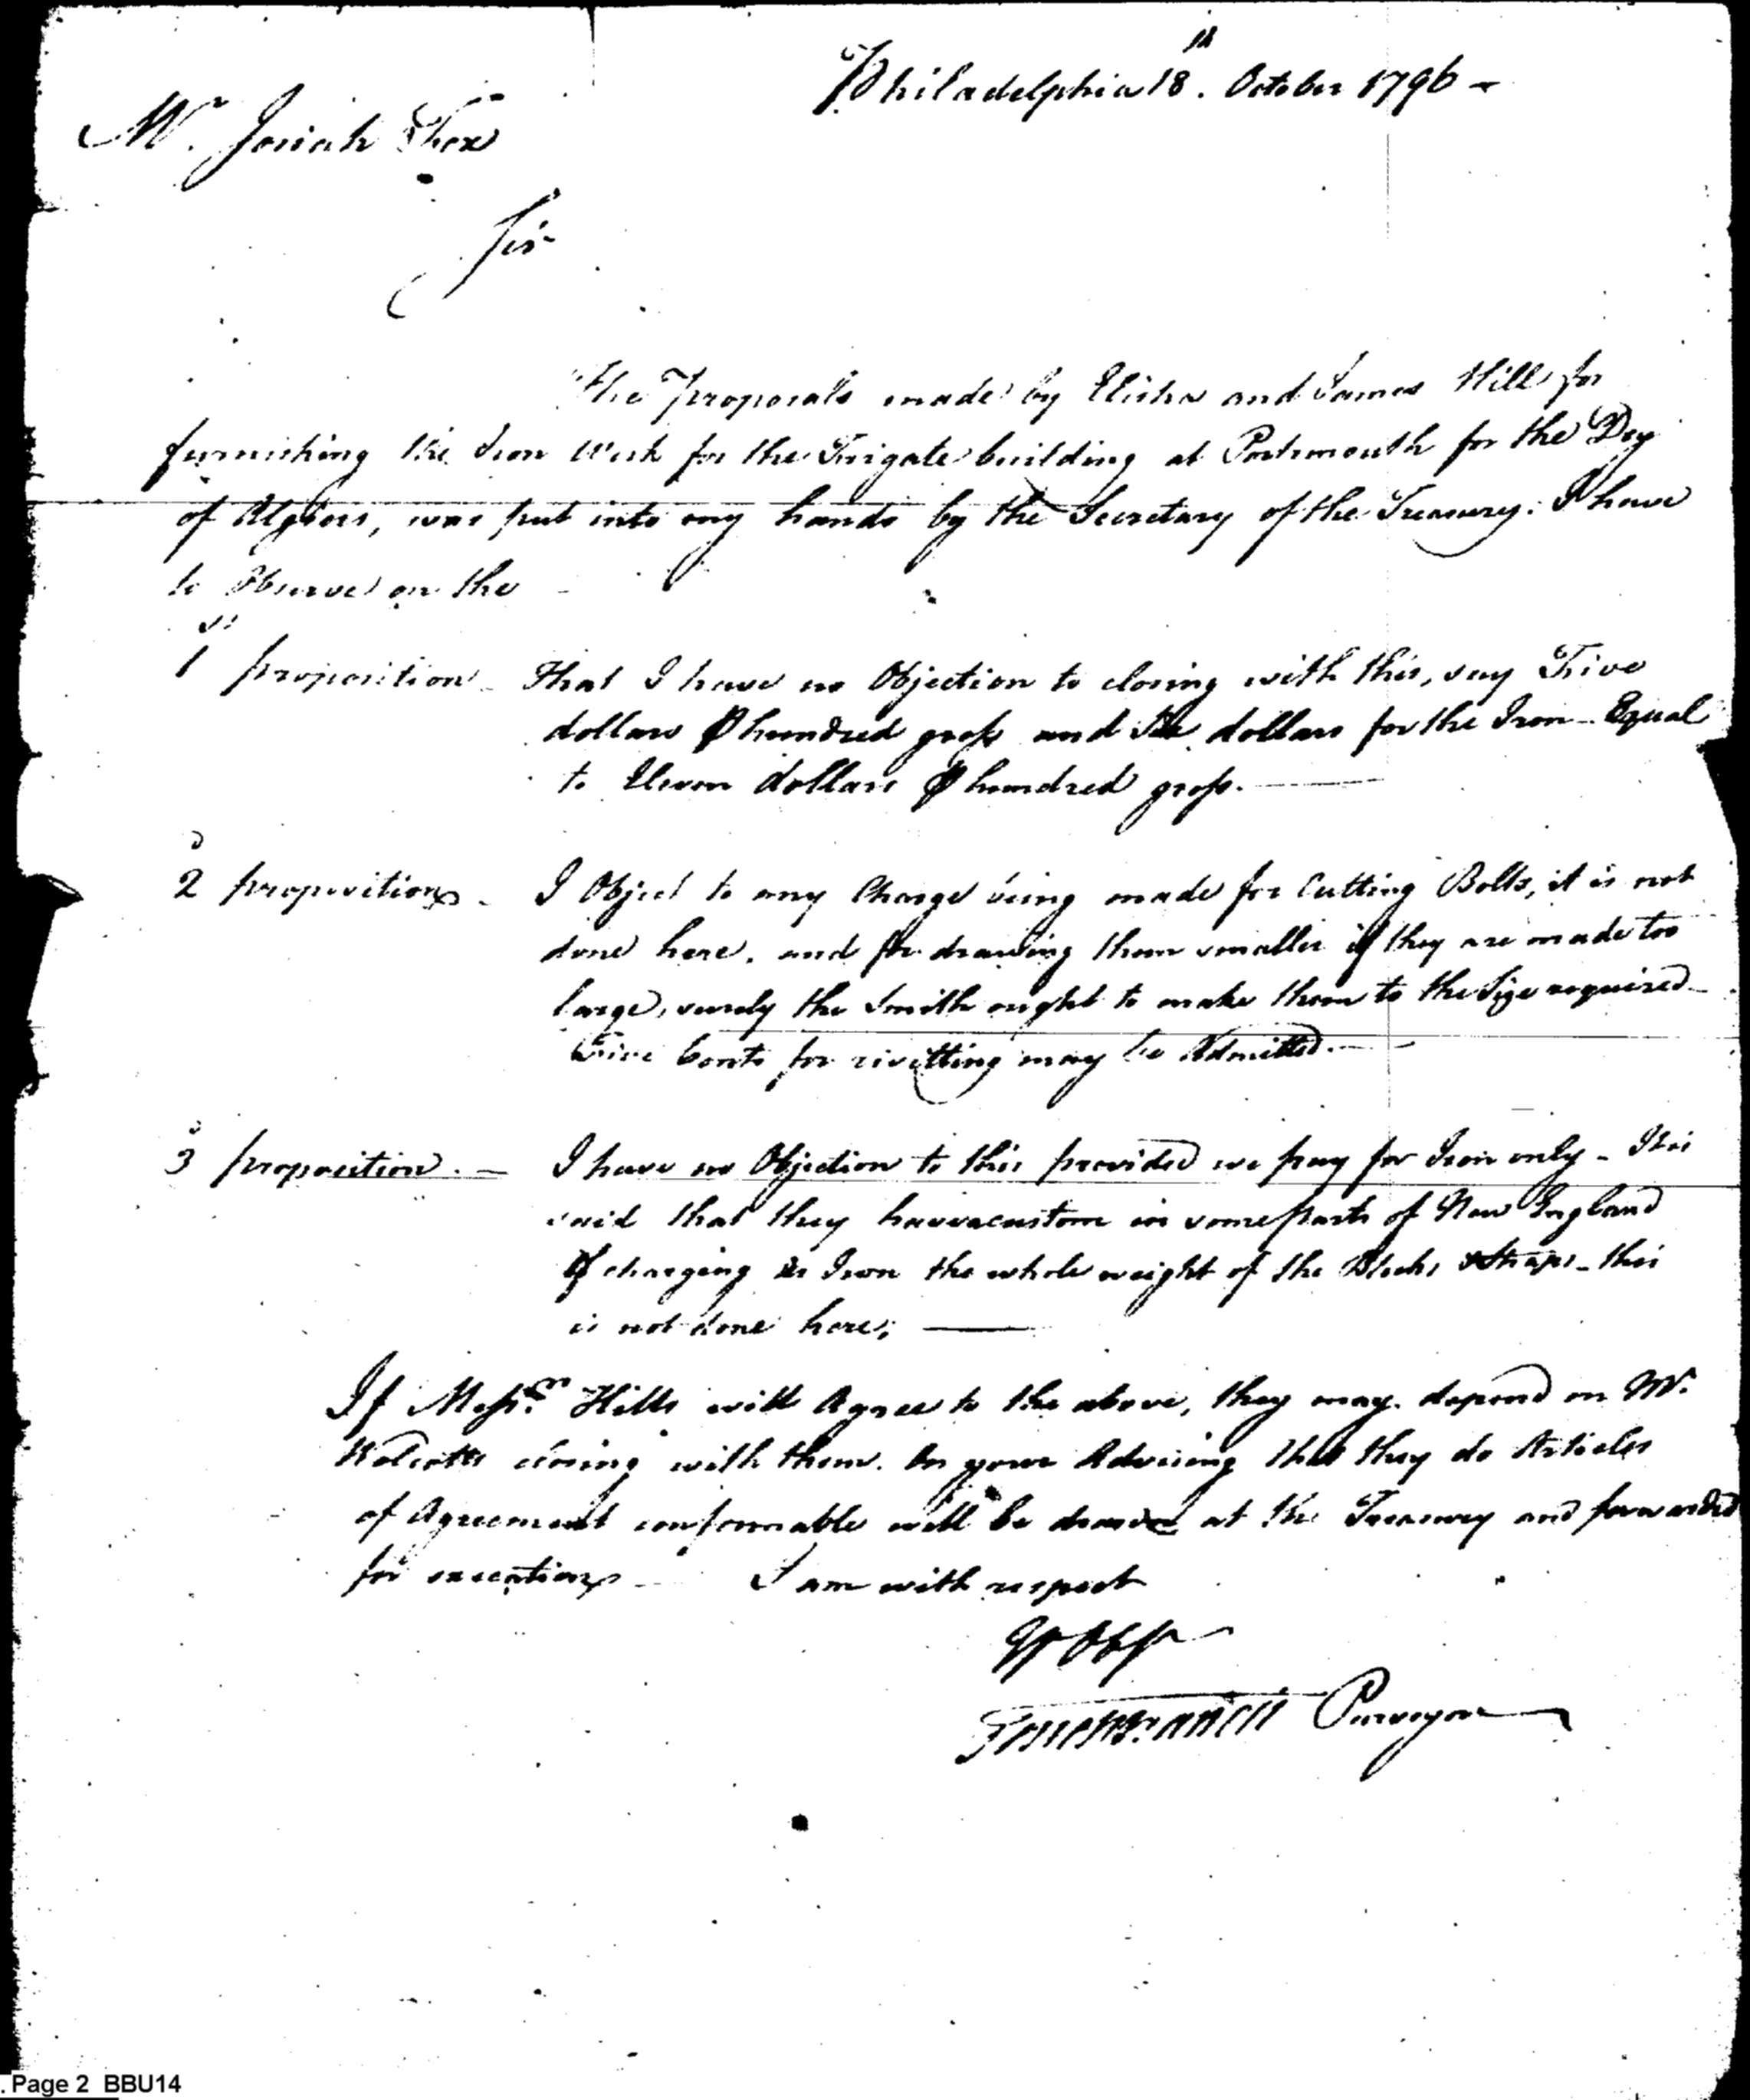 Philadelphia 18th. October 1796 -
Mr. Josiah Fox
Sir
The Proposals made by Elisha and James Hill for
furnishing the Iron Work for the Frigate building at Portsmouth for the Dey
of Algiers, was put into my hands by the Secretary of the Treasury. I have
to Observe on the
1st proposition - That I have no Objection to closing with this, say Five
dollars ⅌ hundred gross and Six dollars for the Iron - Equal
to Eleven dollars ⅌ hundred gross. -
2d proposition - I Object to any Charge being made for Cutting Bolts, it is not
done here, and for drawing them smaller if they are made too
large, surely the Smith ought to make them to the Size required -
Five Cents for rivetting may be Admitted. -
3d proposition. - I have no Objection to this provided we pay for Iron only - It is
said that they have a custom in some parts of New England
of charging as Iron the whole weight of the Blocks & Straps - this
is not done here; -
If Messrs. Hills will Agree to the above, they may depend on Mr.
Wolcotts closing with them. On your Advising that they do Articles
of Agreement conformable will be drawn at the Treasury and forwarded
for execution - I am with respect
Purveyor
Page 2 BBU14